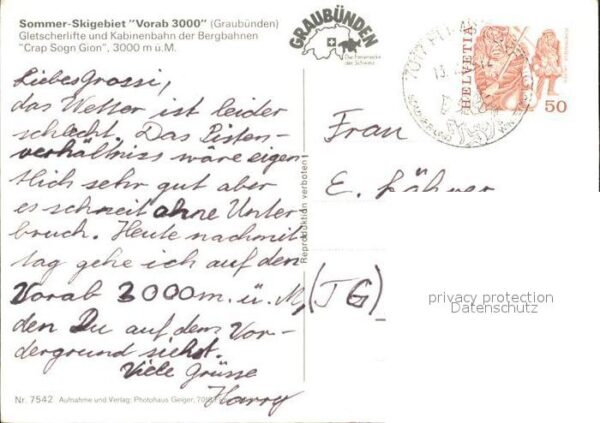 Sommer-Skigebiet "Vorab 3000" (Graubünden)
Gletscherlifte und Kabinenbahn der Bergbahnen
"Crap Sogn Gion", 3000 m ü.M.
GRAUBÜNDEN
Die Ferienecke
der Schweiz
HELVETIA
50
Liebes Grossi,
das Wetter ist leider
schlecht. Das Pisten-
verhältniss wäre eigen
tlich sehr gut aber
es schneit ohne Unter
bruch. Heute nachmit
tag gehe ich auf den
Vorab 3000m. ü. M,
den Du auf dem Vor-
dergrund siehst.
Viele Grüsse
Harry
Reproduktion verboten!
Frau
E.
(JG)
privacy protection
Datenschutz
Nr. 7542 Aufnahme und Verlag: Photohaus Geiger,